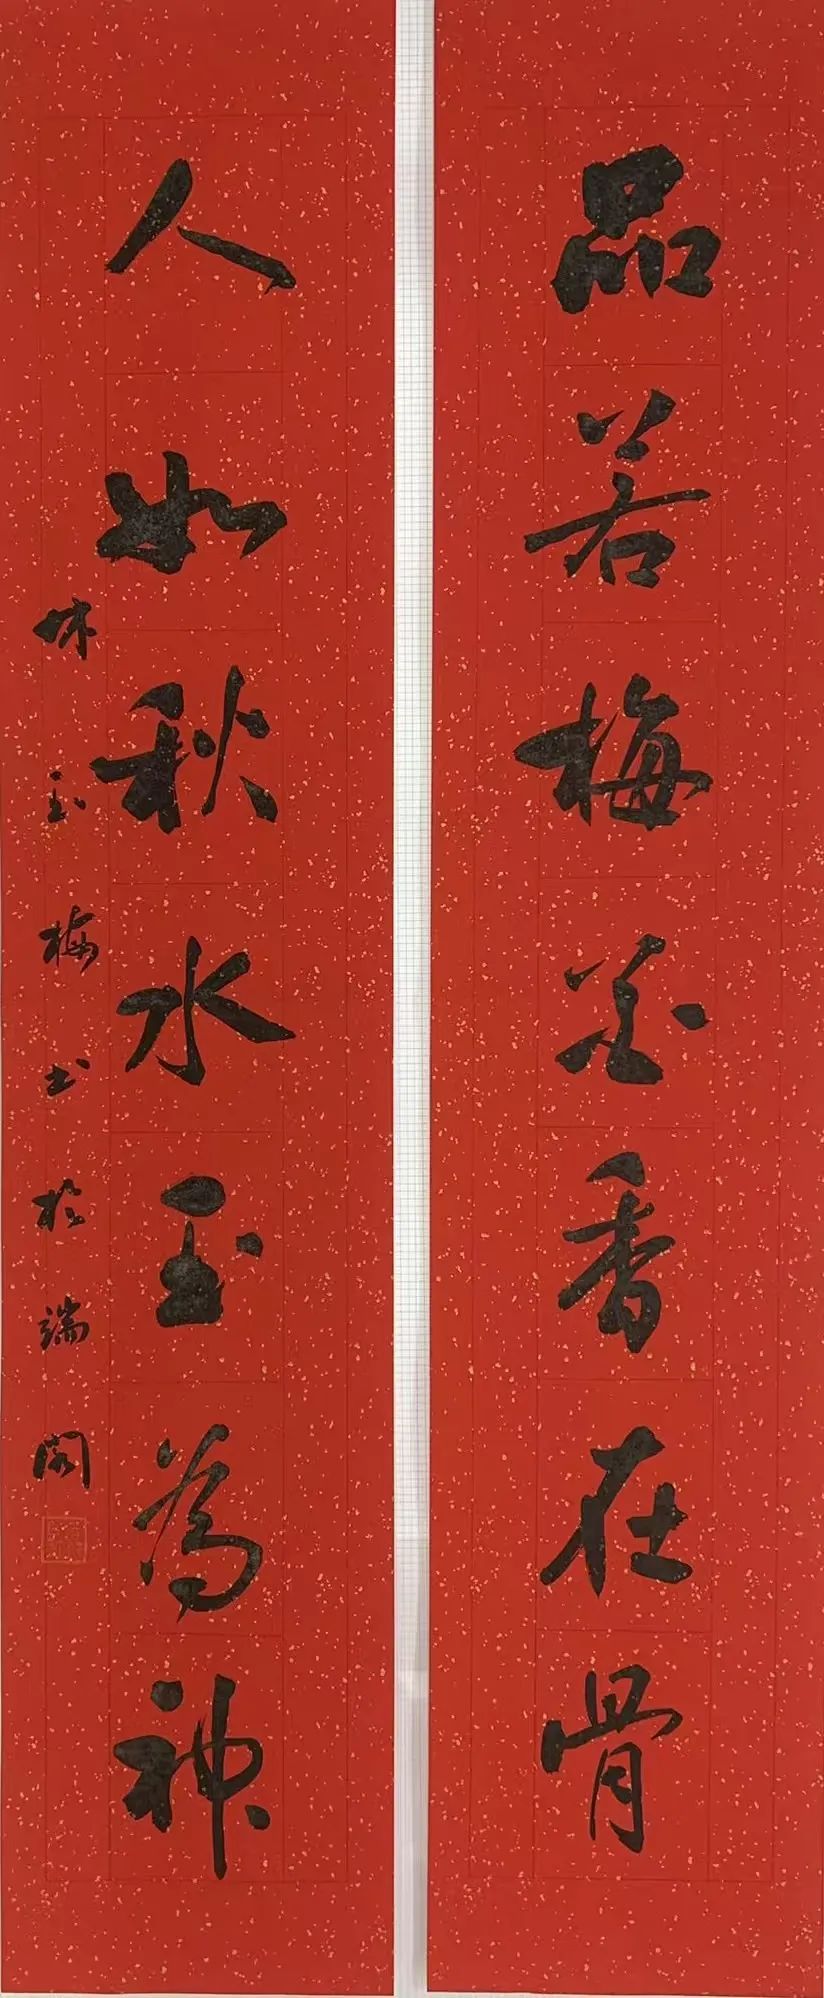 品若梅花香在骨
人如秋水玉為神
林玉梅书於端阁